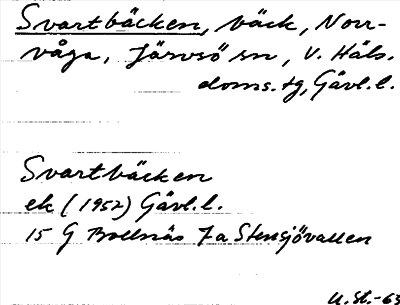 Svartbäcken, bäck, Norr-
våga, Järvsö sn, V. Häls.
doms.tg, Gävl.l.
Svartbäcken
ek (1952) Gävl.l.
15 G Bollnäs 7a Stensjövallen
U.St.-63